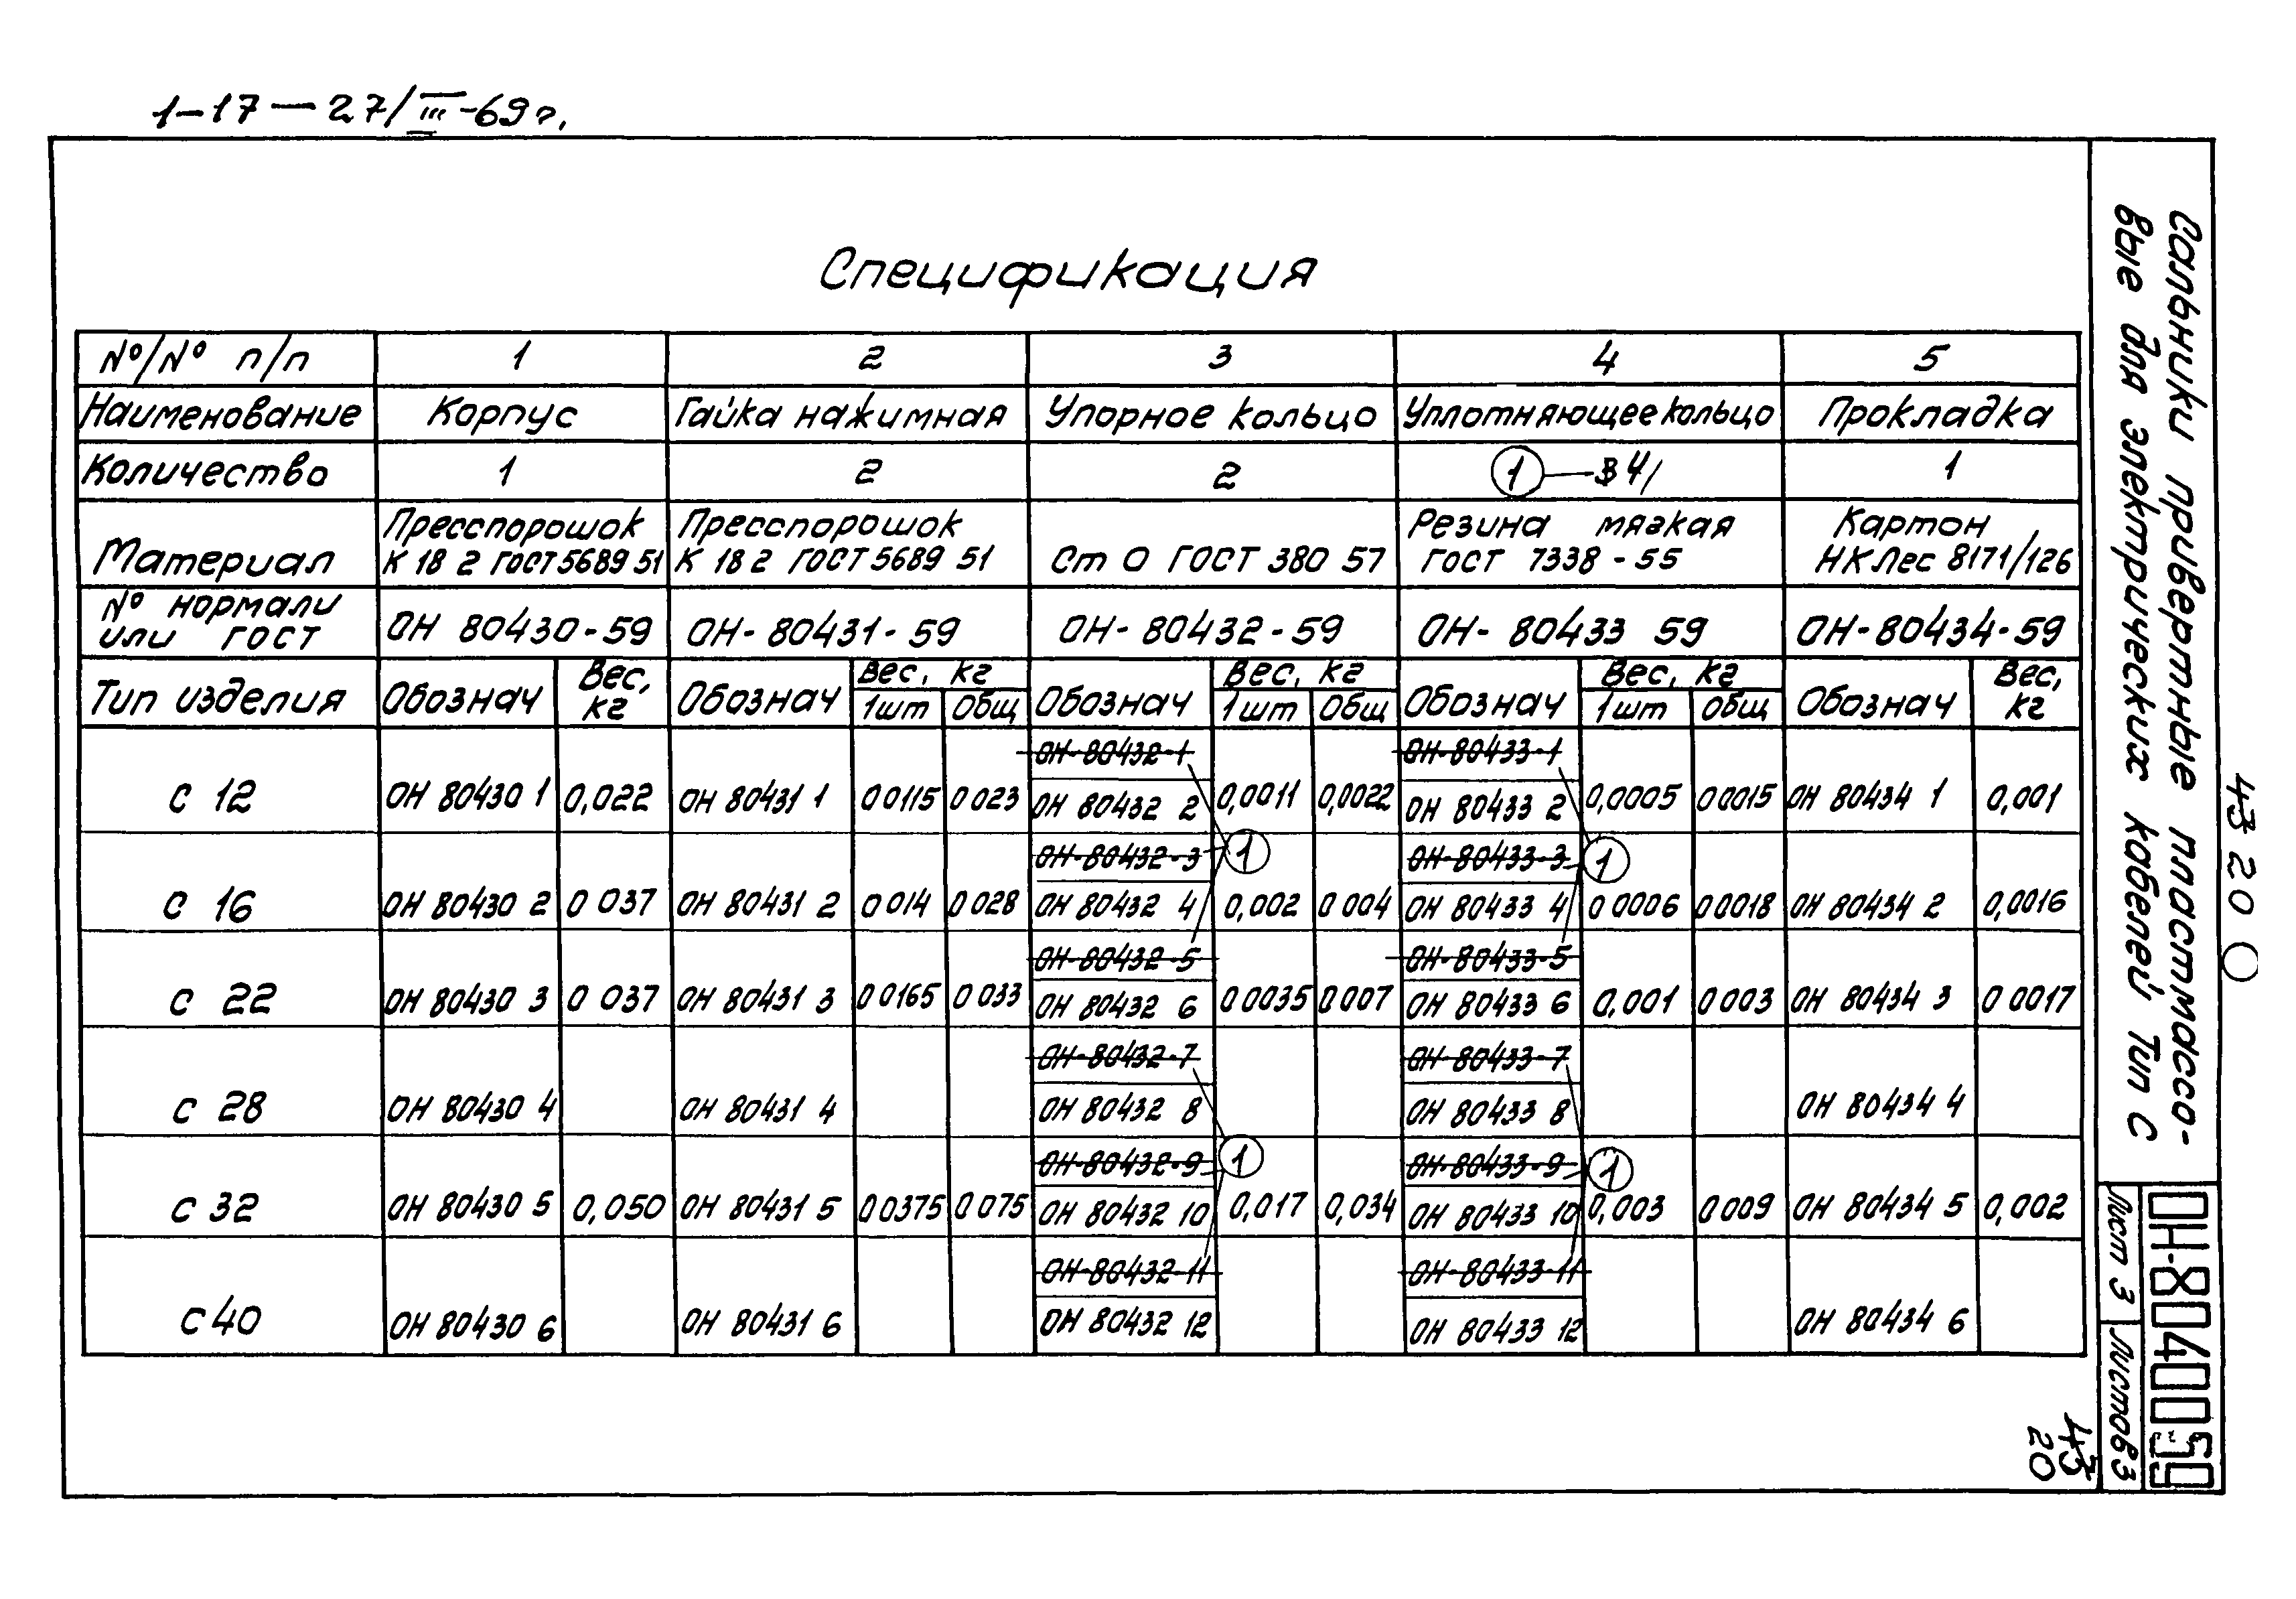 1-17 — 27/III-69 г.
Спецификация
№/№ п/п 1 2 3 4 5
Наименование Корпус Гайка нажимная Упорное кольцо Уплотняющее кольцо Прокладка
Количество 1 2 2 1 — В 4/ 1
Материал Пресспорошок К 18 2 ГОСТ 5689 51 Пресспорошок К 18 2 ГОСТ 5689 51 Ст 0 ГОСТ 380 57 Резина мягкая ГОСТ 7338-55 Картон НКЛес 8171/126
№ нормали или ГОСТ ОН 80430-59 ОН-80431-59 ОН-80432-59 ОН-80433 59 ОН-80434-59
Тип изделия Обознач Вес, кг Обознач Вес, кг 1шт Общ Обознач Вес, кг 1шт Общ Обознач Вес, кг 1шт Общ Обознач Вес, кг
ОН-80432-1 ОН-80433-1
С 12 ОН 80430 1 0,022 ОН 80431 1 0 0115 0 023 ОН 80432 2 0,0011 0,0022 ОН 80433 2 0,0005 0 0015 ОН 80434 1 0,001
ОН-80432-3 1 ОН-80433-3 1
С 16 ОН 80430 2 0 037 ОН 80431 2 0 014 0 028 ОН 80432 4 0,002 0 004 ОН 80433 4 0 0006 0 0018 ОН 80434 2 0,0016
ОН-80432-5 ОН-80433-5
С 22 ОН 80430 3 0 037 ОН 80431 3 0 0165 0 033 ОН 80432 6 0 0035 0 007 ОН 80433 6 0,001 0 003 ОН 80434 3 0 0017
ОН-80432-7 ОН-80433-7
С 28 ОН 80430 4 ОН 80431 4 ОН 80432 8 ОН 80433 8 ОН 80434 4
ОН-80432-9 1 ОН-80433-9 1
С 32 ОН 80430 5 0,050 ОН 80431 5 0 0375 0 075 ОН 80432 10 0,017 0,034 ОН 80433 10 0,003 0 009 ОН 80434 5 0,002
ОН-80432-11 ОН-80433-11
С 40 ОН 80430 6 ОН 80431 6 ОН 80432 12 ОН 80433 12 ОН 80434 6
Сальники привертные пластмассо-
вые для электрических кабелей Тип С
ОН-80400 59
Лист 3 Листов 3
43 20
43
20